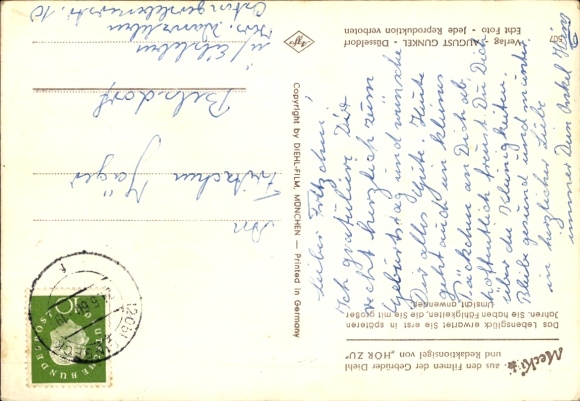 Mecki
- aus den Filmen der Gebrüder Diehl
und Redaktionsigel von „HÖR ZU"
Das Lebensglück erwartet Sie erst in späteren
Jahren. Sie haben Fähigkeiten, die Sie mit großer
Umsicht anwenden.
Lieber Fritzchen!
Ich gratuliere Dir
recht herzlich zum
Geburtstag und wünsche
Dir alles Gute. Heute
geht auch ein kleines
Päckchen an Dich ab.
Hoffentlich freust Du Dich
über die Kleinigkeiten.
Bleibe gesund und munter
in herzlicher Liebe
immer Dein Onkel Heinz
Copyright by DIEHL-FILM, MÜNCHEN — Printed in Germany
Verlag AUGUST GUNKEL - Düsseldorf
Echt Foto - Jede Reproduktion verboten
Agfa
DEUTSCHE BUNDESPOST
10
An
Fritzchen Jäger
Belsdorf
ü/Eilsleben
Krs. Wanzleben